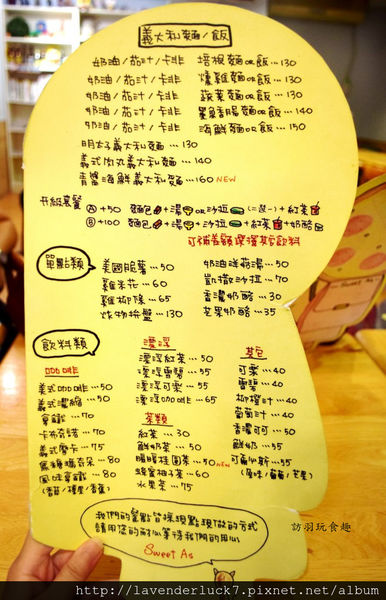 義大利麵/飯
奶油/茄汁/卡菲 培根麵or飯…130
奶油/茄汁/卡菲 燻雞麵or飯…130
奶油/茄汁/卡菲 蔬菜麵or飯…130
奶油/茄汁/卡菲 墨魚香腸麵or飯…140
奶油/茄汁/卡菲 海鮮麵or飯…150
明太子義大利麵…130
義式肉丸義大利麵…140
青醬海鮮義大利麵…160 NEW
升級套餐 Ⓐ+50 麵包+湯or沙拉(二選一)+紅茶
Ⓑ+100 麵包+湯or沙拉+紅茶+奶酪
可補差額選擇其它飲料
單點類
美國脆薯…50
雞米花…60
雞柳條…65
炸物拚盤…130
奶油洋菇湯…50
凱撒沙拉…70
香濃奶酪…30
芒果奶酪…35
飲料類
咖啡
美式咖啡…50
義式濃縮…50
拿鐵…70
卡布奇諾…70
義式摩卡…75
焦糖瑪奇朵…80
風味拿鐵…80
(香草/榛果/香蕉)
漂浮
漂浮紅茶…50
漂浮雪碧…55
漂浮可樂…55
漂浮咖啡…65
茶類
紅茶…30
鮮奶茶…50
暖暖桂圓茶…50 NEW
蜂蜜柚子茶…60
水果茶…75
其它
可樂…40
雪碧…40
柳橙汁…40
葡萄汁…40
香濃可可…50
鮮奶…55
可爾必斯…55
(原味/葡萄/芒果)
我們的餐點皆採現點現做的方式
請用您的耐心等待我們的用心
Sweet As
訪羽玩食趣
http://lavenderluck7.pixnet.net/album